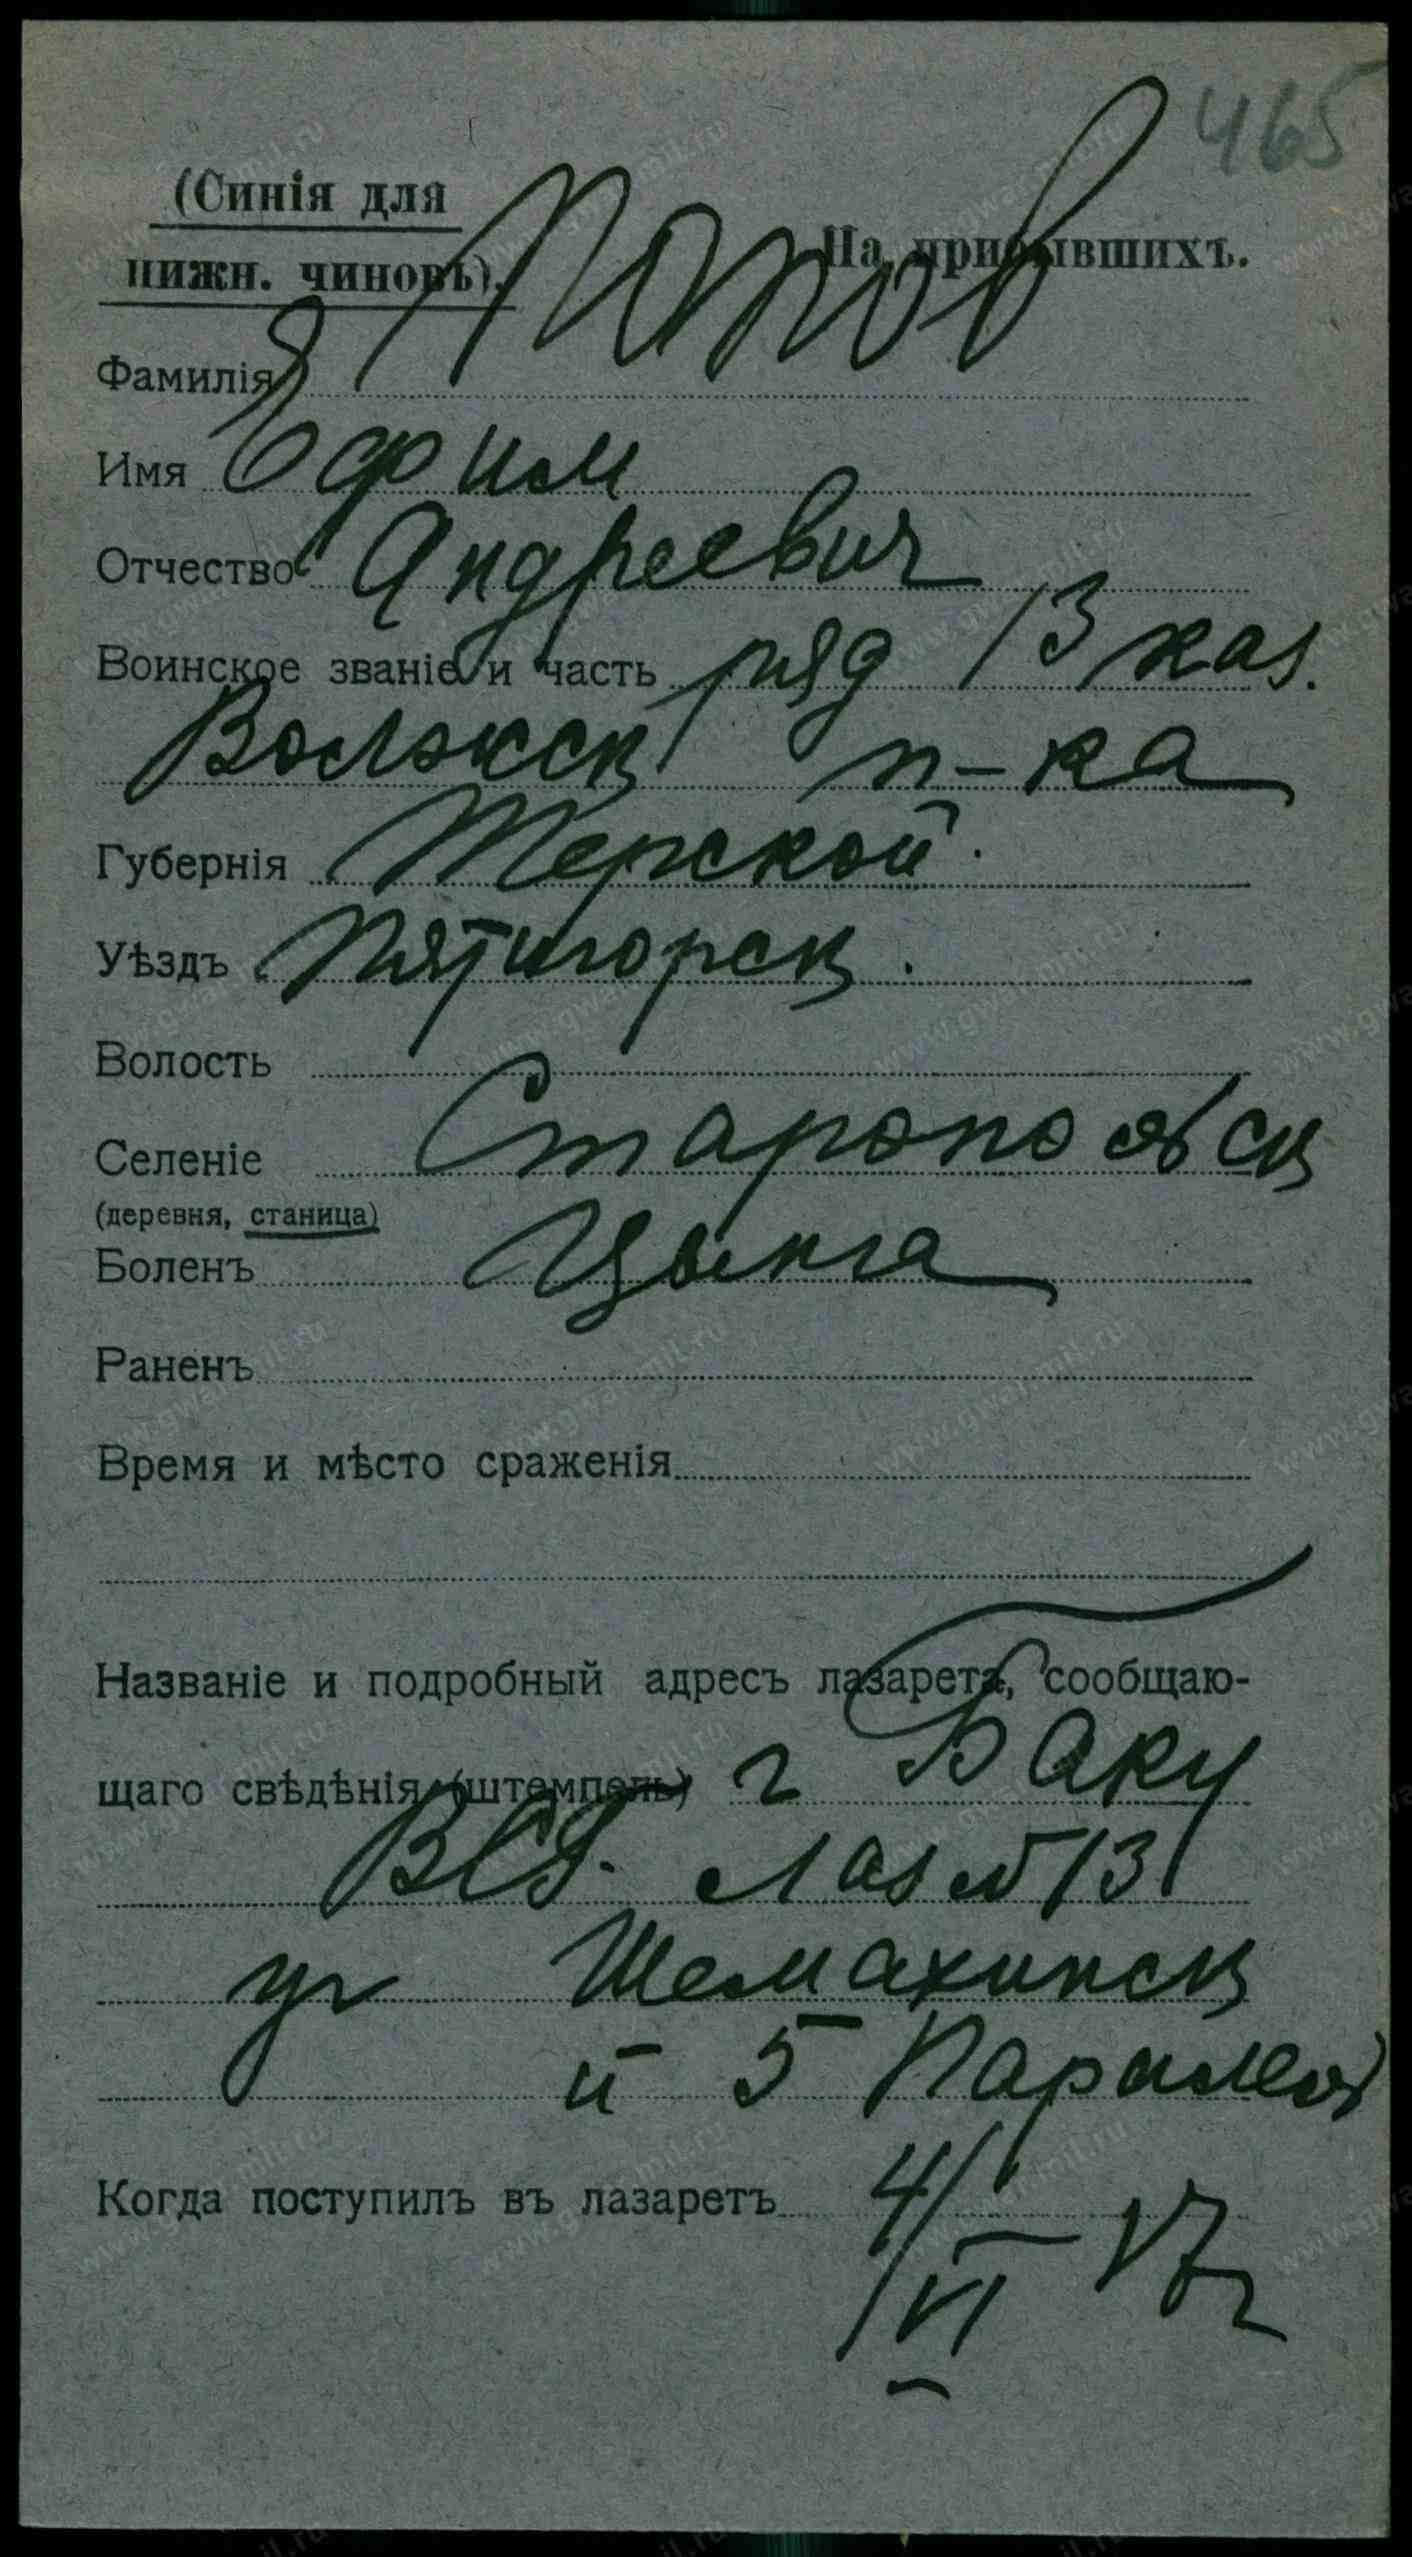 465
(Синія для
нижн. чиновъ).
На прибывшихъ.
Фамилія Попов
Имя Ефим
Отчество Андреевич
Воинское званіе и часть ряд 13 каз.
Волжск п-ка
Губернія Терской
Уѣздъ Пятигорск
Волость
Селеніе
(деревня, станица)
Боленъ Цынга
Раненъ
Время и мѣсто сраженія
Названіе и подробный адресъ лазарета, сообщаю-
щаго свѣдѣнія (штемпель) г Баку
ВСГ. Лаз № 13
уг Шемахинск
и 5 Паралел
Когда поступилъ въ лазаретъ 4/VI 17 г